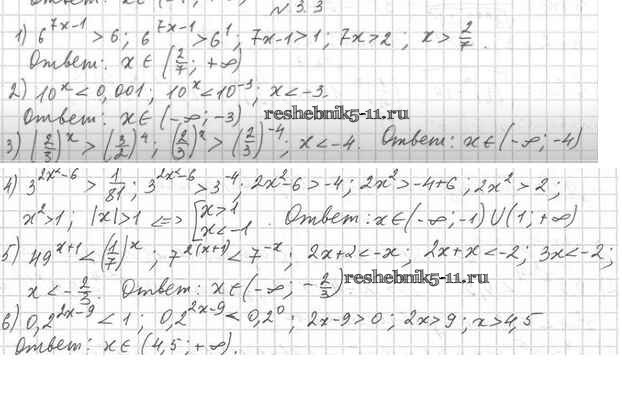 № 3.3
1) 6^(7x-1) > 6; 6^(7x-1) > 6^1; 7x-1>1; 7x>2; x > 2/7.
Ответ: x ∈ (2/7; +∞)
2) 10^x < 0,001; 10^x < 10^(-3); x < -3.
Ответ: x ∈ (-∞; -3)
reshebnik5-11.ru
3) (2/3)^x > (3/2)^4; (2/3)^x > (2/3)^(-4); x < -4. Ответ: x ∈ (-∞; -4)
4) 3^(2x²-6) > 1/81; 3^(2x²-6) > 3^(-4); 2x²-6 > -4; 2x² > -4+6; 2x² > 2;
x² > 1; |x| > 1 <=> [x > 1 x < -1. Ответ: x ∈ (-∞; -1) U (1; +∞)
5) 49^(x+1) < (1/7)^x; 7^(2(x+1)) < 7^(-x); 2x+2 < -x; 2x+x < -2; 3x < -2;
x < -2/3. Ответ: x ∈ (-∞; -2/3)
reshebnik5-11.ru
6) 0,2^(2x-9) < 1; 0,2^(2x-9) < 0,2^0; 2x-9 > 0; 2x > 9; x > 4,5
Ответ: x ∈ (4,5; +∞).